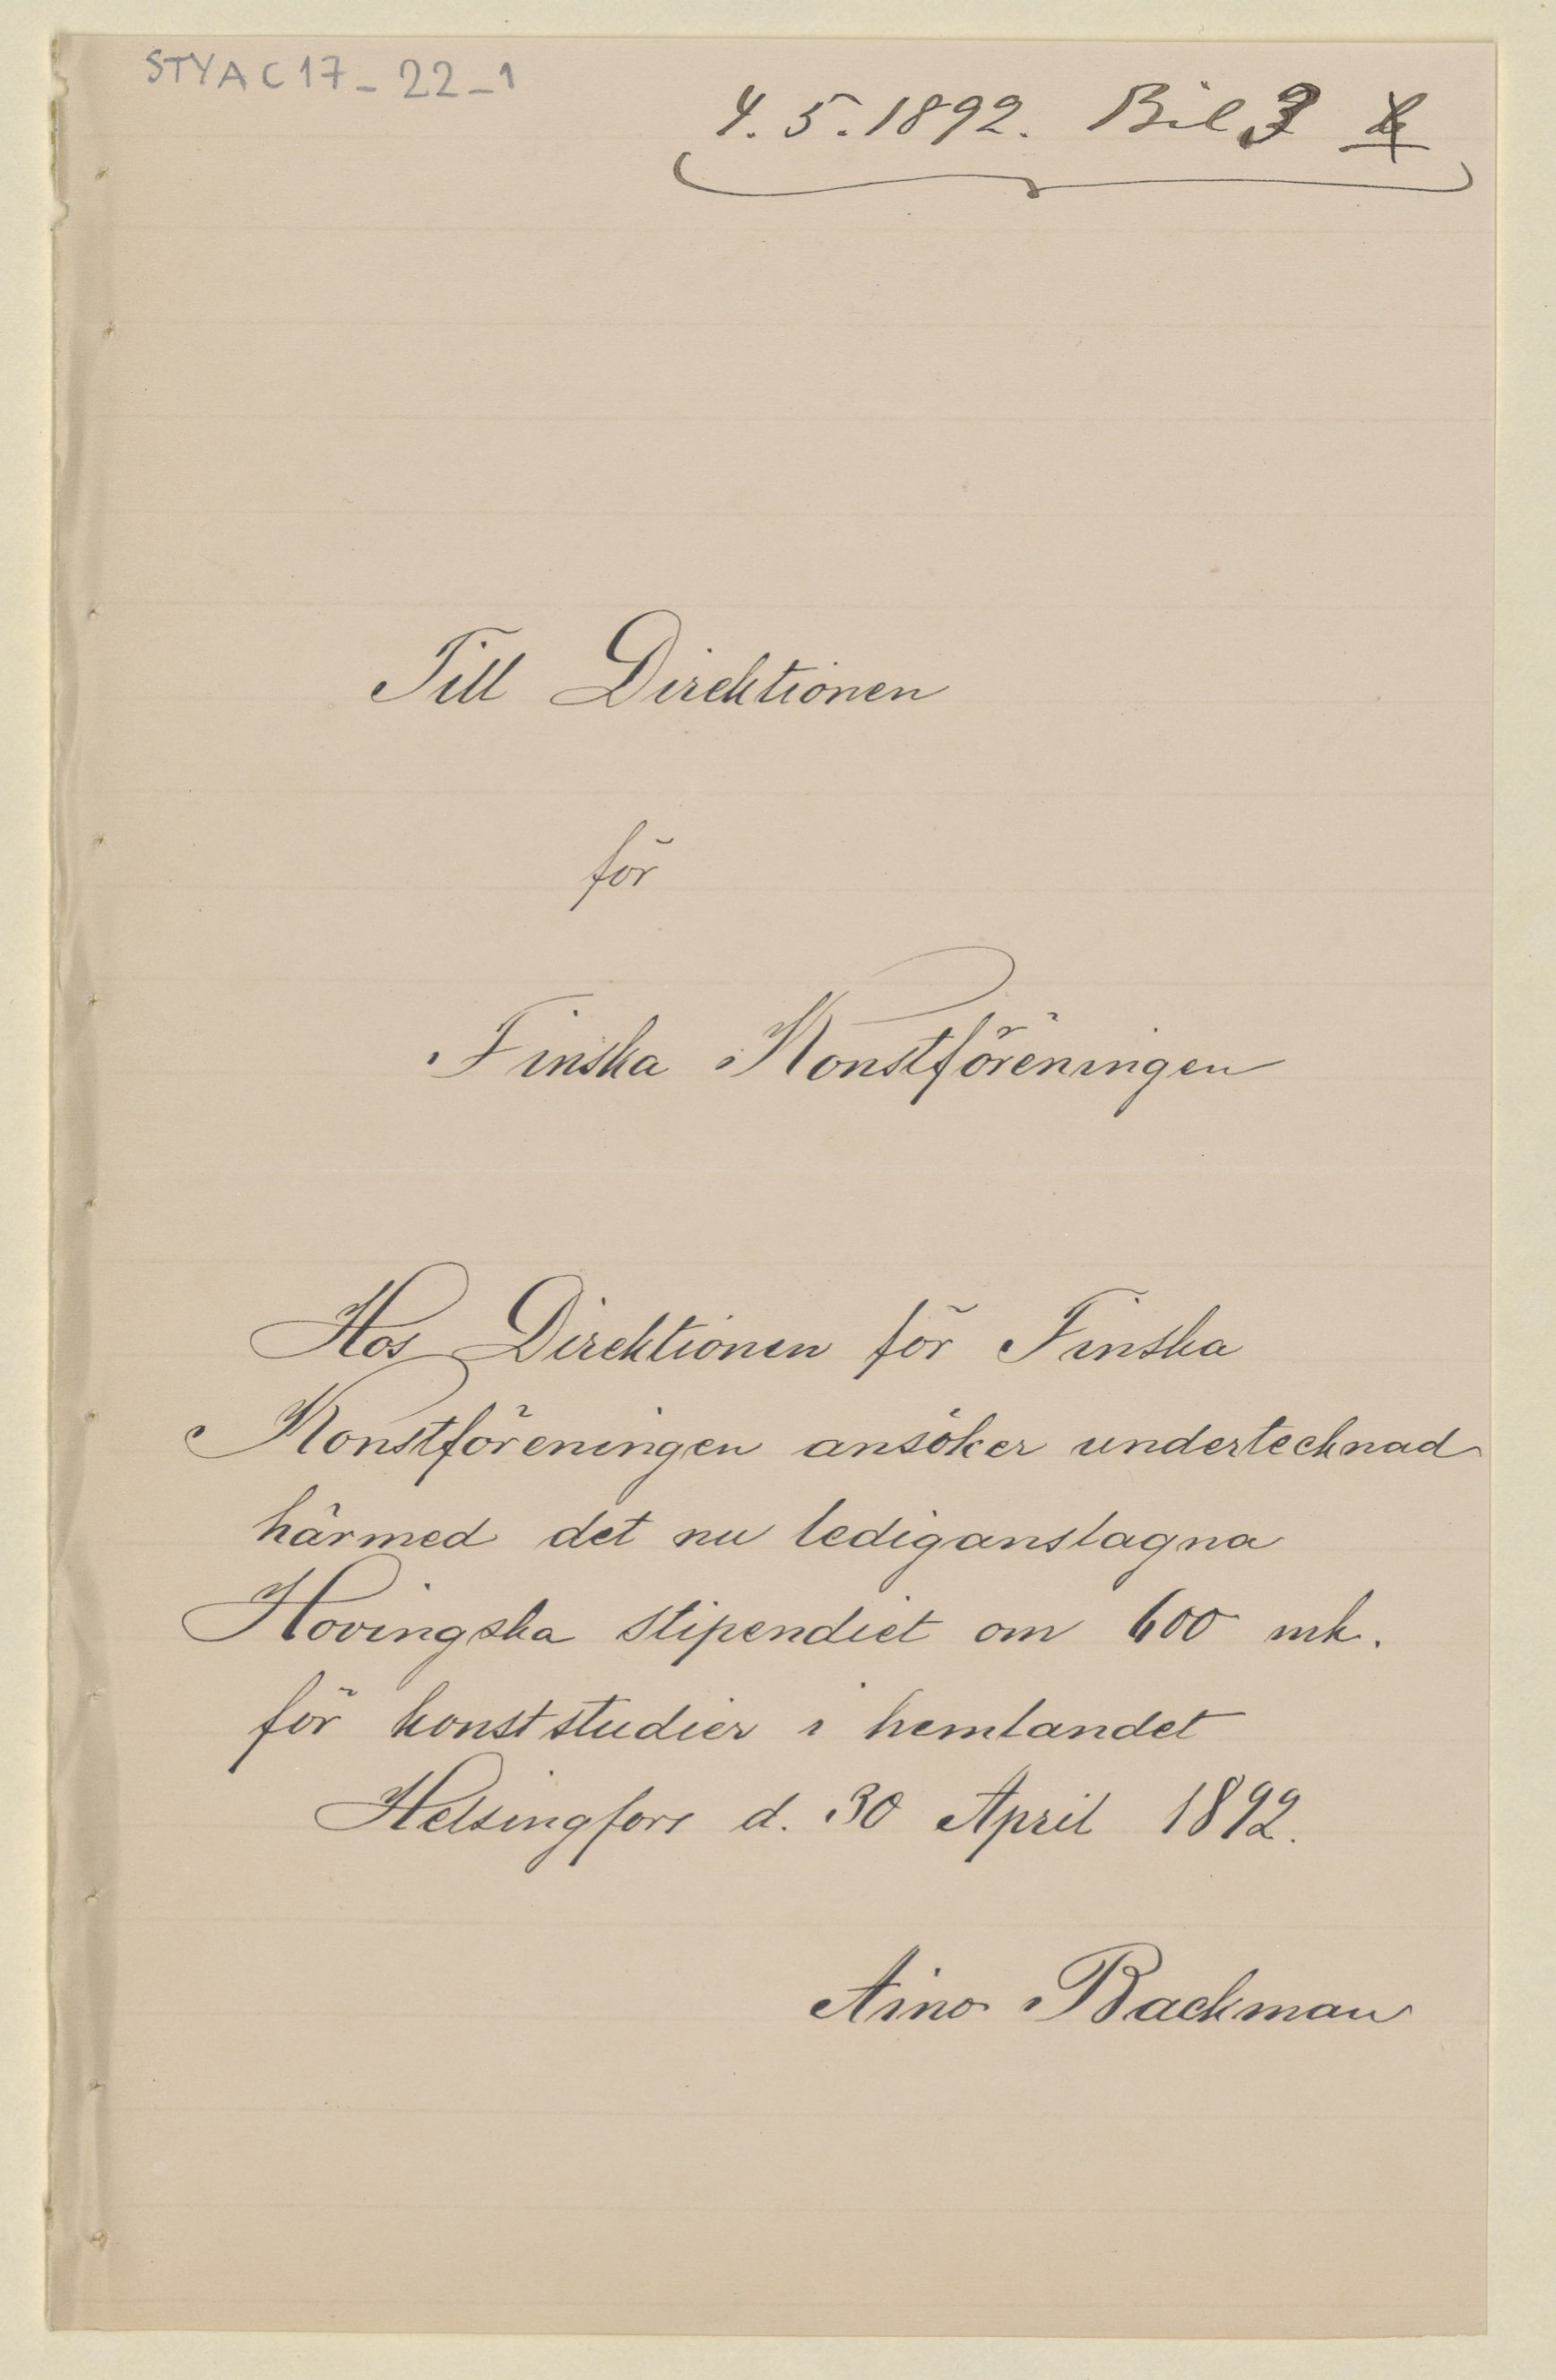 STY A C 17 - 22 - 1
4. 5. 1892. Bil 3
Till Direktionen
för
Finska Konstföreningen
Hos Direktionen för Finska
Konstföreningen ansöker undertecknad
härmed det nu lediganslagna
Hovingska stipendiet om 600 mk.
för konststudier i hemlandet
Helsingfors d. 30 April 1892.
Aino Backman